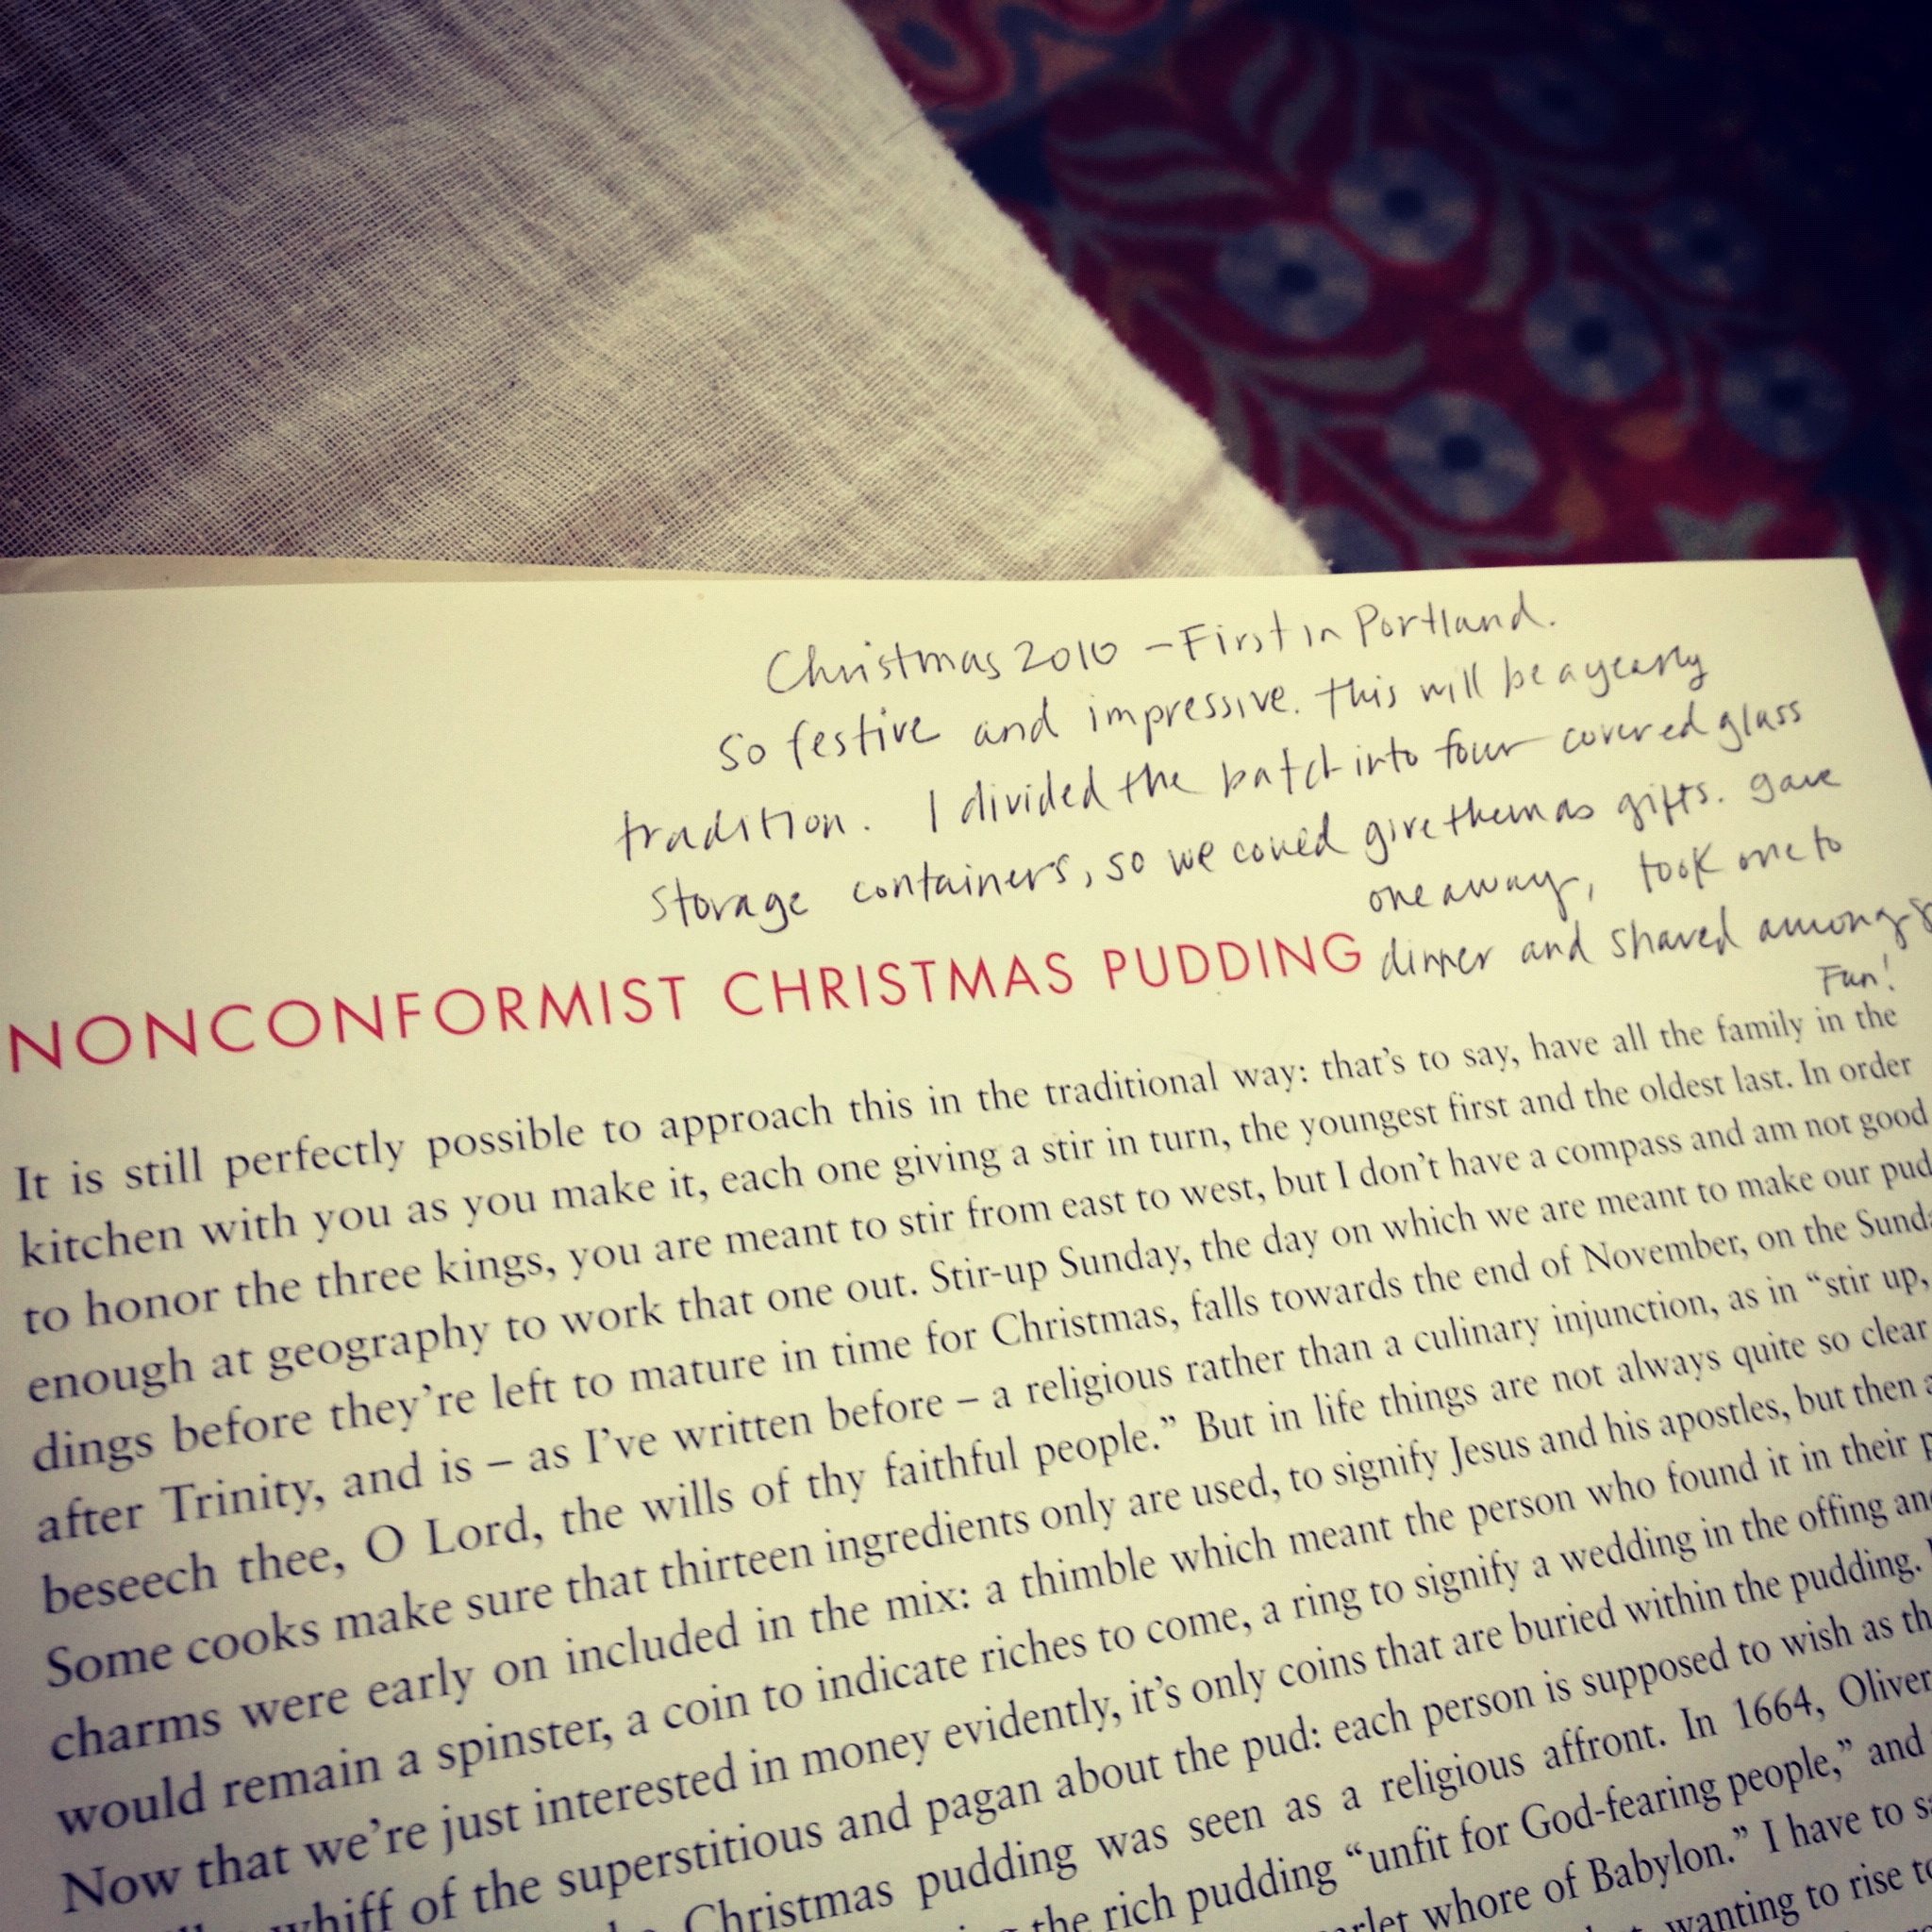 Christmas 2010 – First in Portland.
So festive and impressive. This will be a yearly
tradition. I divided the batch into four covered glass
storage containers, so we could give them as gifts. gave
one away, took one to
dinner and shared among
Fun!
NONCONFORMIST CHRISTMAS PUDDING
It is still perfectly possible to approach this in the traditional way: that's to say, have all the family in the
kitchen with you as you make it, each one giving a stir in turn, the youngest first and the oldest last. In order
to honor the three kings, you are meant to stir from east to west, but I don't have a compass and am not good
enough at geography to work that one out. Stir-up Sunday, the day on which we are meant to make our pud
dings before they're left to mature in time for Christmas, falls towards the end of November, on the Sund
after Trinity, and is – as I've written before – a religious rather than a culinary injunction, as in “stir up,
beseech thee, O Lord, the wills of thy faithful people.” But in life things are not always quite so clear
Some cooks make sure that thirteen ingredients only are used, to signify Jesus and his apostles, but then
charms were early on included in the mix: a thimble which meant the person who found it in their
would remain a spinster, a coin to indicate riches to come, a ring to signify a wedding in the offing an
Now that we're just interested in money evidently, it's only coins that are buried within the pudding.
whiff of the superstitious and pagan about the pud: each person is supposed to wish as th
Christmas pudding was seen as a religious affront. In 1664, Oliver
the rich pudding “unfit for God-fearing people,” and
whore of Babylon.” I have to
wanting to rise